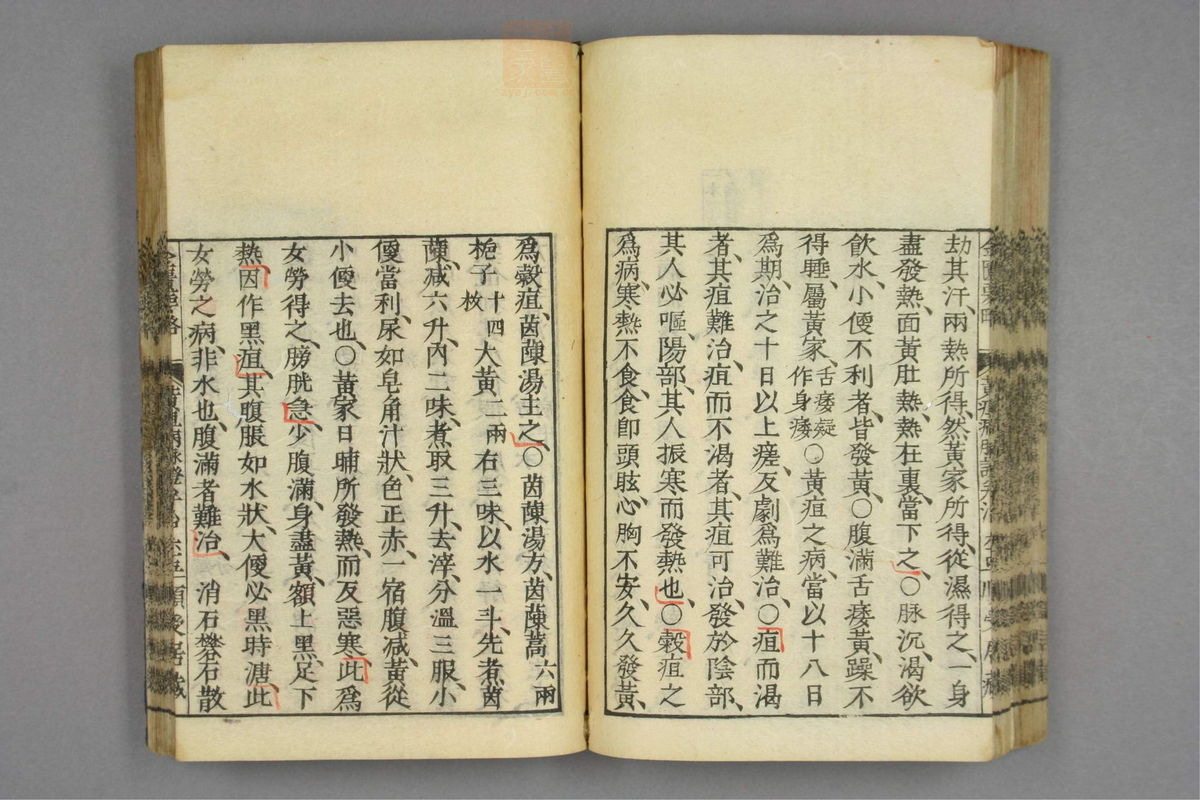 劫其汗、兩熱所得、然黃家所得、從濕得之、一身
盡發熱、面黃肚熱、熱在裏、當下之、〇脉沉、渴欲
飲水、小便不利者、皆發黃、〇腹滿舌痿黃、躁不
得睡、屬黃家、舌痿疑作身痿〇黃疸之病、當以十八日
爲期、治之十日以上瘥、反劇爲難治、〇疸而渴
者、其疸難治、疸而不渴者、其疸可治、發於陰部、
其人必嘔、陽部、其人振寒而發熱也、〇穀疸之
爲病、寒熱不食、食卽頭眩、心胸不安、久久發黃、
爲穀疸、茵蔯湯主之、〇茵蔯湯方、茵蔯蒿六兩
梔子十四枚大黃二兩右三味、以水一斗、先煮茵
蔯、減六升、內二味、煮取三升、去滓、分溫三服、小
便當利、尿如皂角汁狀、色正赤、一宿腹減、黃從
小便去也、〇黃家日晡所發熱、而反惡寒、此爲
女勞得之、膀胱急、少腹滿、身盡黃、額上黑、足下
熱、因作黑疸、其腹脹如水狀、大便必黑、時溏、此
女勞之病、非水也、腹滿者難治、消石礬石散